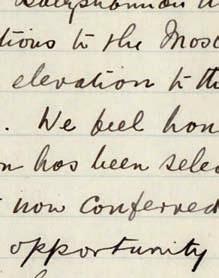 tions to the Most
elevation to th
. We feel hon
n has been selec
now conferred
opportunity